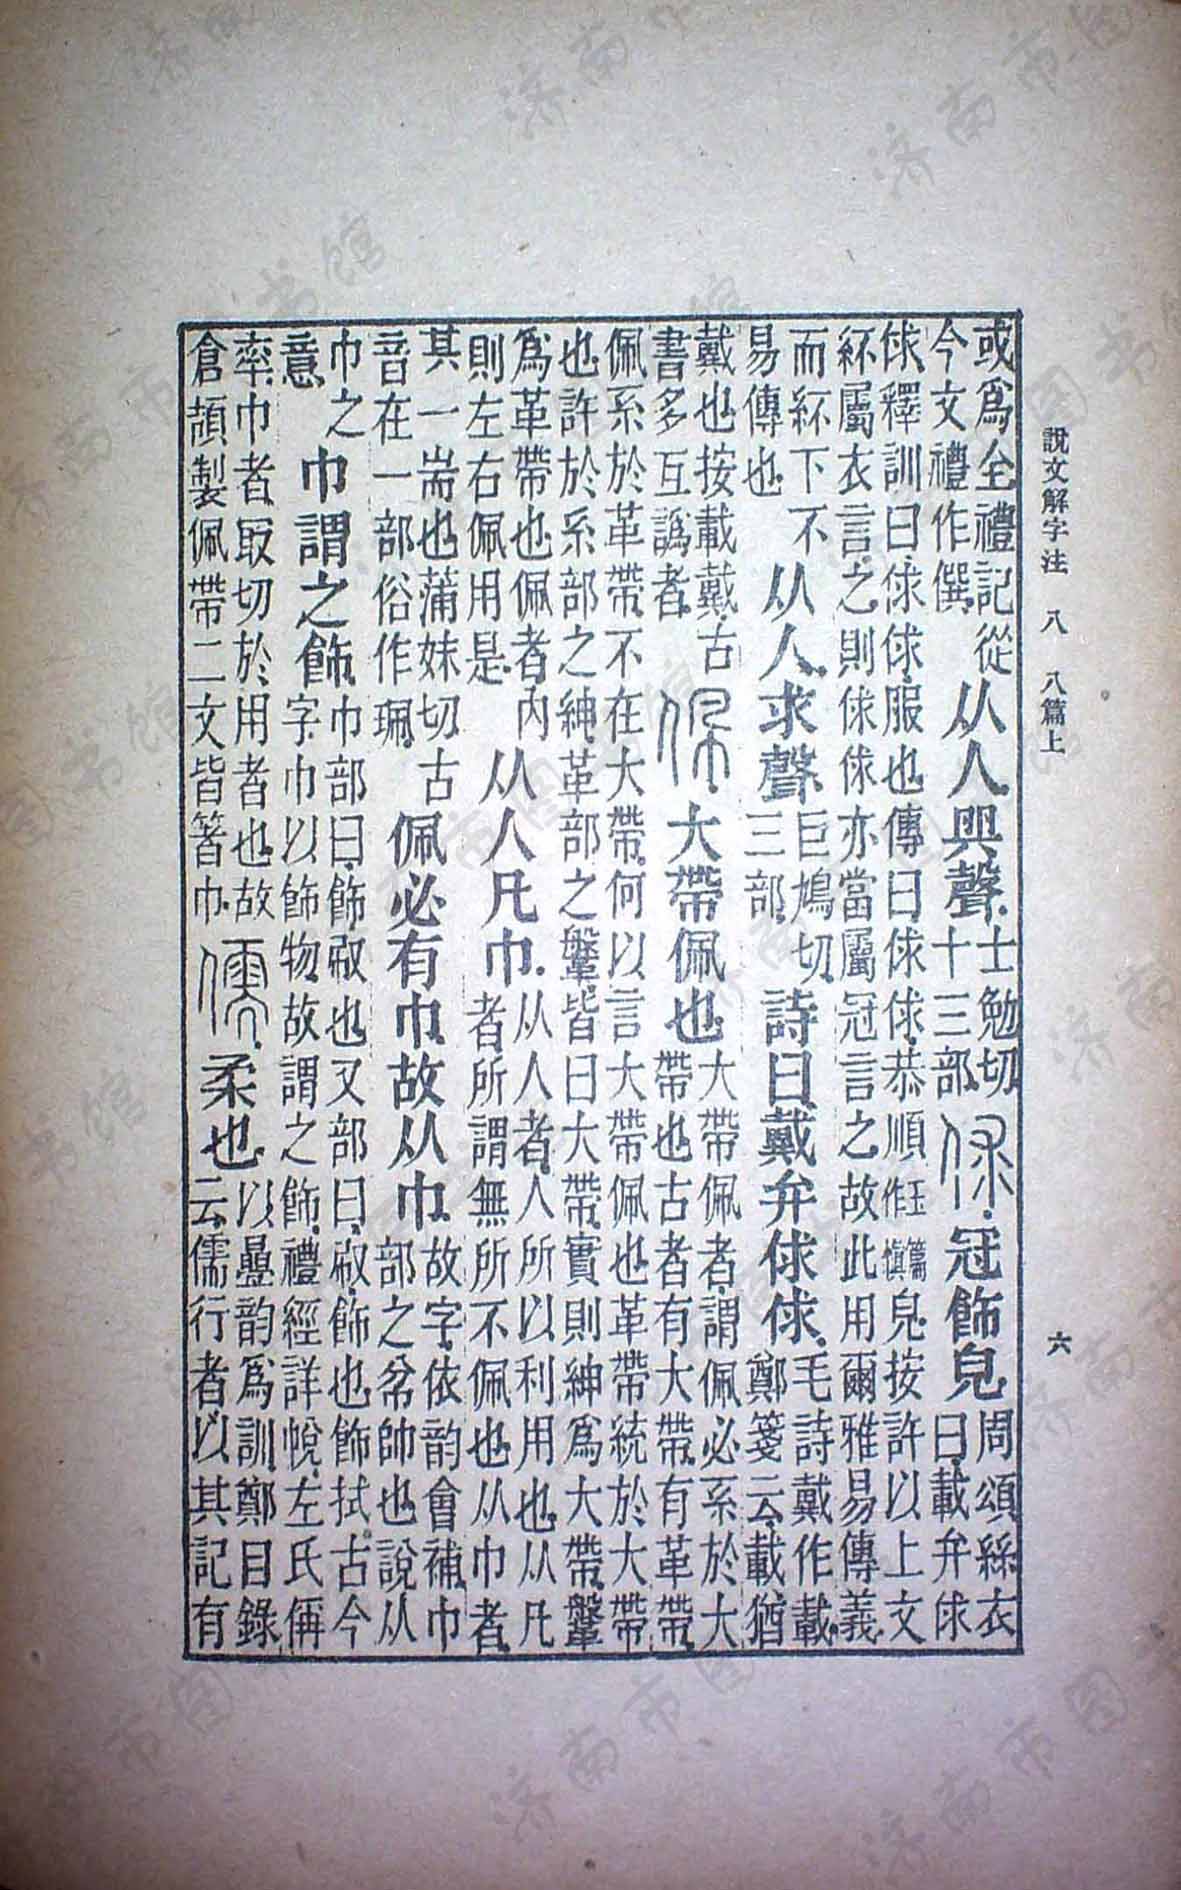 說文解字注 八 八篇上 六
或爲全禮記從
今文禮作僎
从人巺聲
士勉切
十三部
俅
冠飾皃
周頌絲衣
曰載弁俅
俅釋訓曰俅俅服也傳曰俅俅恭順玉篇作慎皃按許以上文
紑屬衣言之則俅俅亦當屬冠言之故此用爾雅易傳義
而紑下不
易傳也
从人求聲
巨鳩切
三部
詩曰戴弁俅俅
毛詩戴作載
鄭箋云載猶
戴也按載戴古
書多互譌者
佩
大帶佩也
大帶佩者謂佩必系於大
帶也古者有大帶有革帶
佩系於革帶不在大帶何以言大帶佩也革帶統於大帶
也許於系部之紳革部之鞶皆曰大帶實則紳爲大帶鞶
爲革帶也佩者內
則左右佩用是
从人凡巾
从人者人所以利用也从凡
者所謂無所不佩也从巾者
其一耑也蒲妹切古
音在一部俗作珮
佩必有巾故从巾
故字依韵會補巾
部之帉帥也說从
巾之
意
巾謂之飾
巾部曰飾㕞也又部曰㕞飾也飾拭古今
字巾以飾物故謂之飾禮經詳帨左氏偁
率巾者取切於用者也故
倉頡製佩帶二文皆箸巾
儒
柔也
以疊韵爲訓鄭目錄
云儒行者以其記有
济南市图书馆